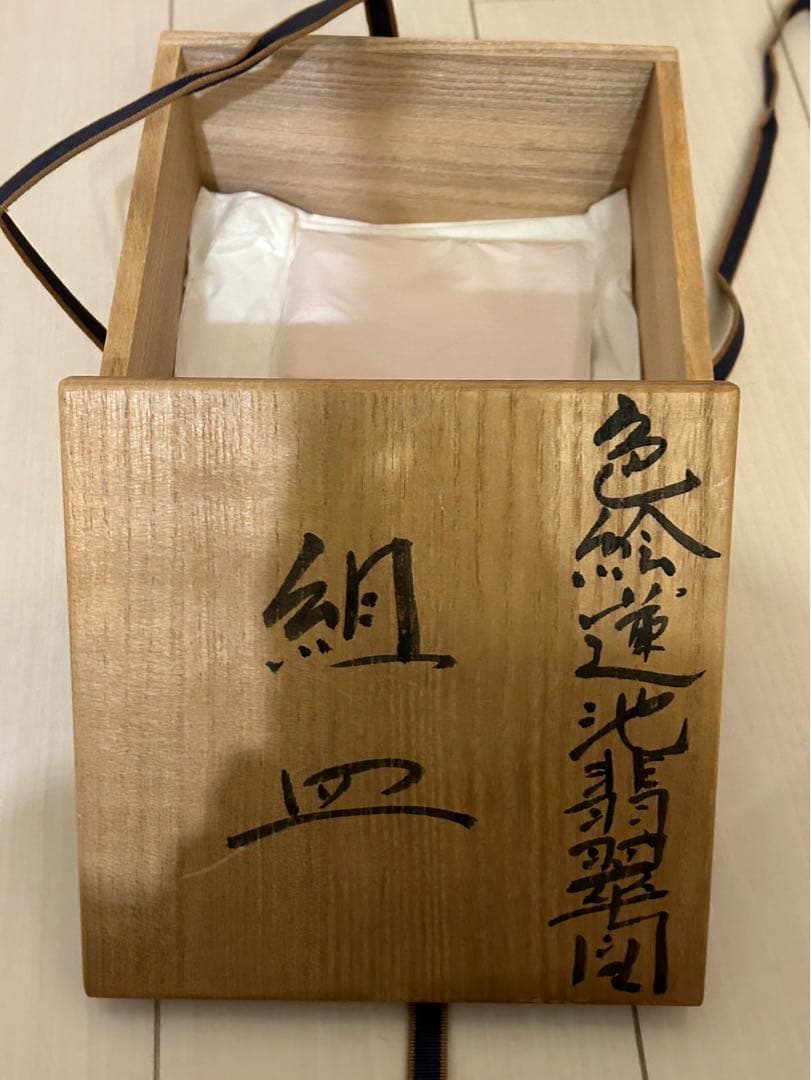 色絵蓮池翡翠図
組皿